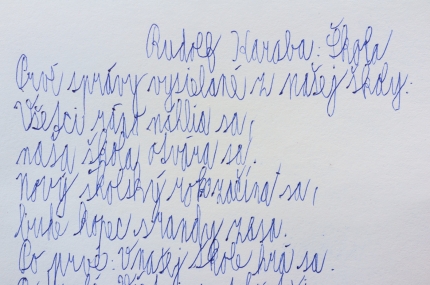 Rudolf Harsba: Škola
Prvé správy vysielané z našej školy:
Všetci ráno náhlia sa,
naša škola otvára sa.
Nový školský rok začína sa,
bude kopec srandy zasa.
Po prvé: V našej škole hrá sa.